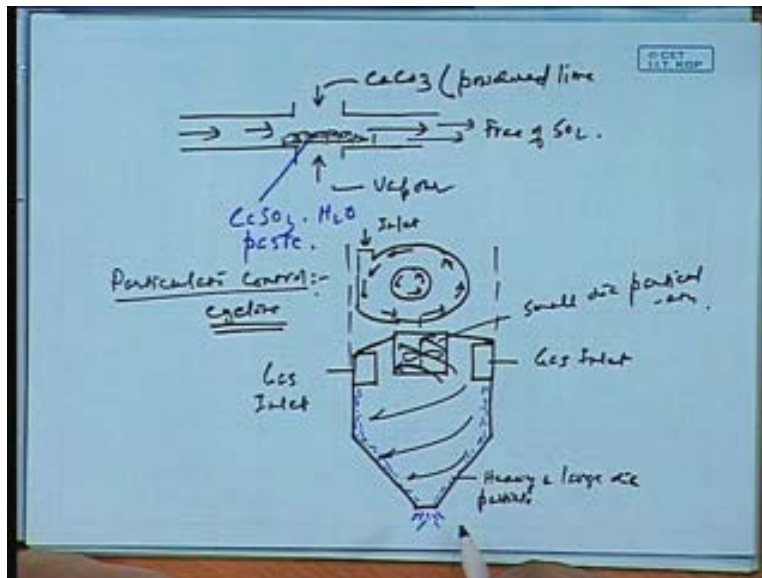 © CET
I.I.T. KGP
CaCO3 (powdured lime
Free of SO2.
Vapour
CaSO3 . H2O
paste.
Inlet
Particulate Control:-
cyclone
small dia particl
Gas Inlet
Gas
Inlet
Heavy & large dia
particl.